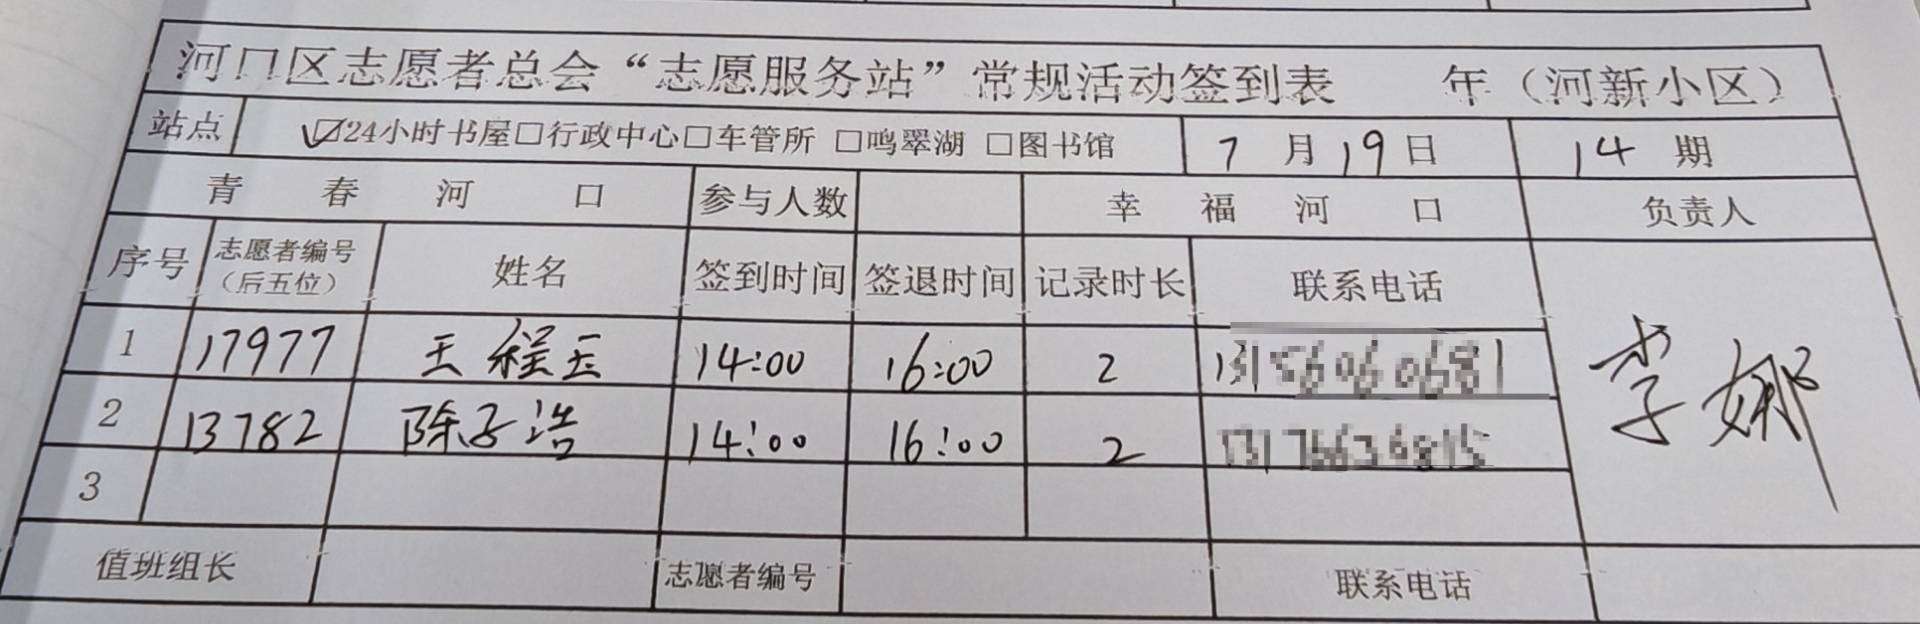 河口区志愿者总会“志愿服务站”常规活动签到表 年（河新小区）
站点 ☑24小时书屋□行政中心□车管所 □鸣翠湖 □图书馆 7月19日 14期
青春河口 参与人数 幸福河口 负责人
序号 志愿者编号（后五位） 姓名 签到时间 签退时间 记录时长 联系电话
1 17977 王程玉 14:00 16:00 2
2 13782 陈子浩 14:00 16:00 2
李娜
3
值班组长 志愿者编号 联系电话